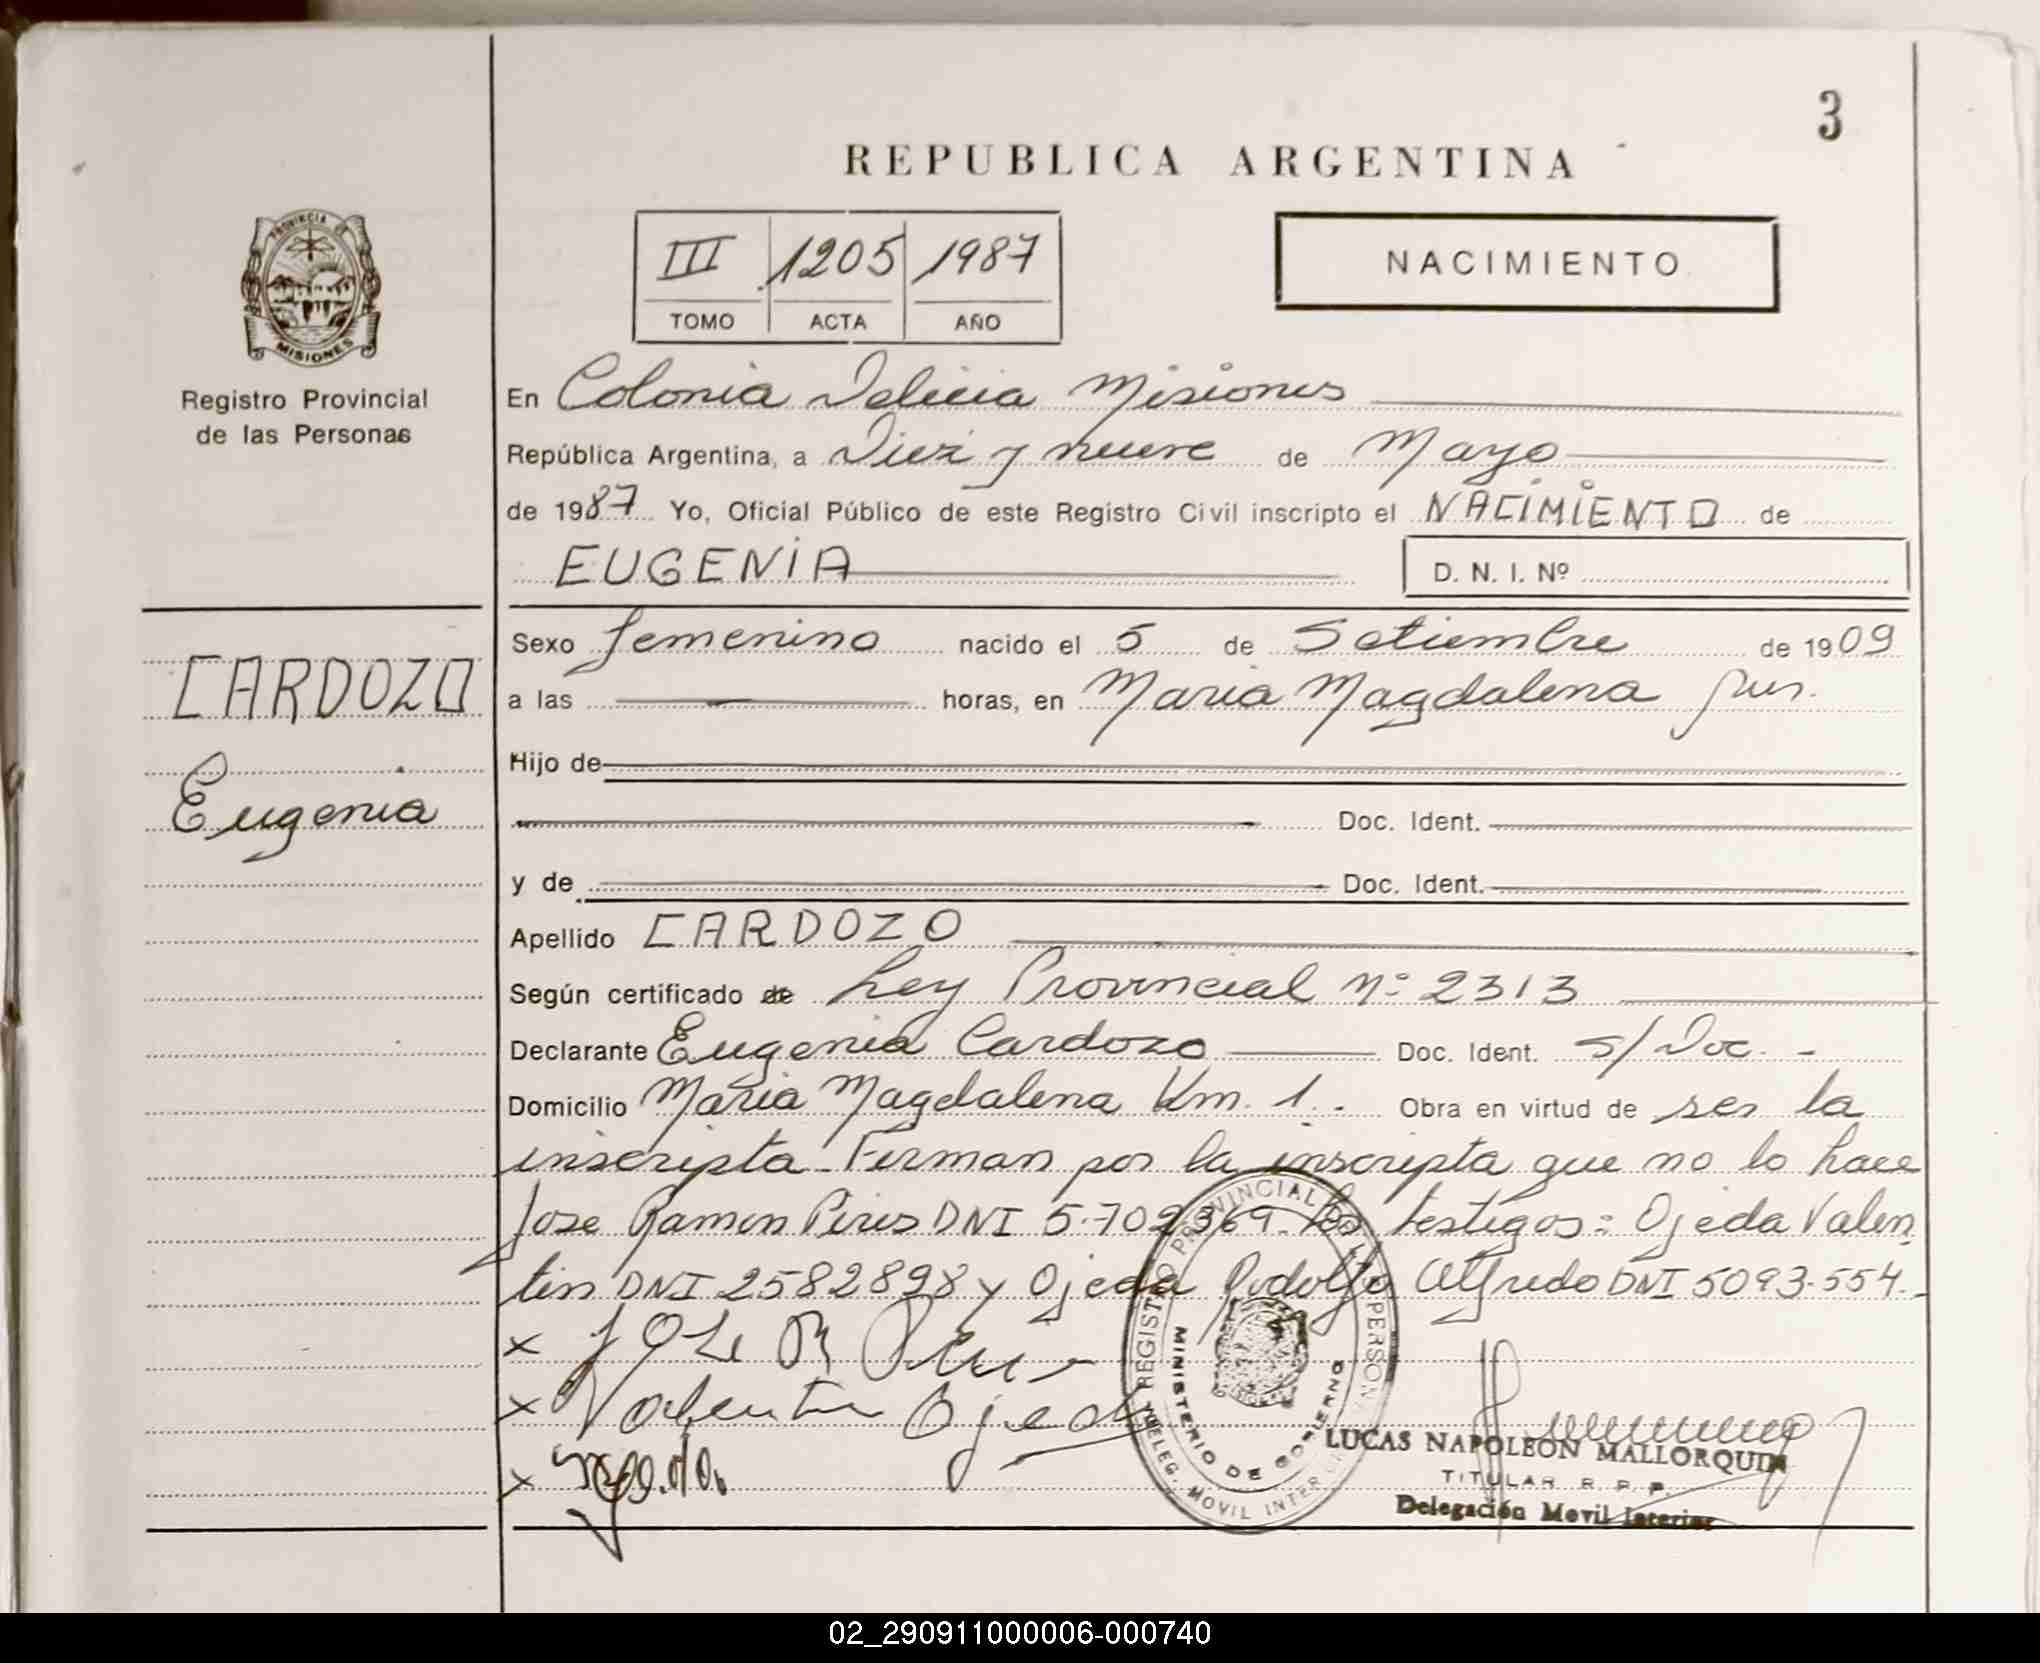 3
REPUBLICA ARGENTINA
PROVINCIA DE
MISIONES
Registro Provincial
de las Personas
III 1205 1987
TOMO ACTA AÑO
NACIMIENTO
En Colonia Delicia Misiones
República Argentina, a Diez y nueve de Mayo
de 1987 Yo, Oficial Público de este Registro Civil inscripto el NACIMIENTO de
EUGENIA
D. N. I. Nº
CARDOZO
Eugenia
Sexo femenino nacido el 5 de Setiembre de 1909
a las horas, en Maria Magdalena
Hijo de
Doc. Ident.
y de Doc. Ident.
Apellido CARDOZO
Según certificado de Ley Provincial Nº 2313
Declarante Eugenia Cardozo Doc. Ident. s/Doc. -
Domicilio Maria Magdalena Km. 1. - Obra en virtud de ser la
inscripta - Firman por la inscripta que no lo hace
Jose Ramon Pires DNI 5.702369 - los testigos: Ojeda Valen
tin DNI 2582898 y Ojeda Rodolfo Alfredo DNI 5093.554. -
x Jose R
x Valentin Ojeda
x
REGISTRO PROVINCIAL DE LAS PERSONAS
MINISTERIO DE GOBIERNO
DELEG. MOVIL INTERIOR
LUCAS NAPOLEON MALLORQUIN
TITULAR R. P. P.
Delegación Movil Interior
02_290911000006-000740